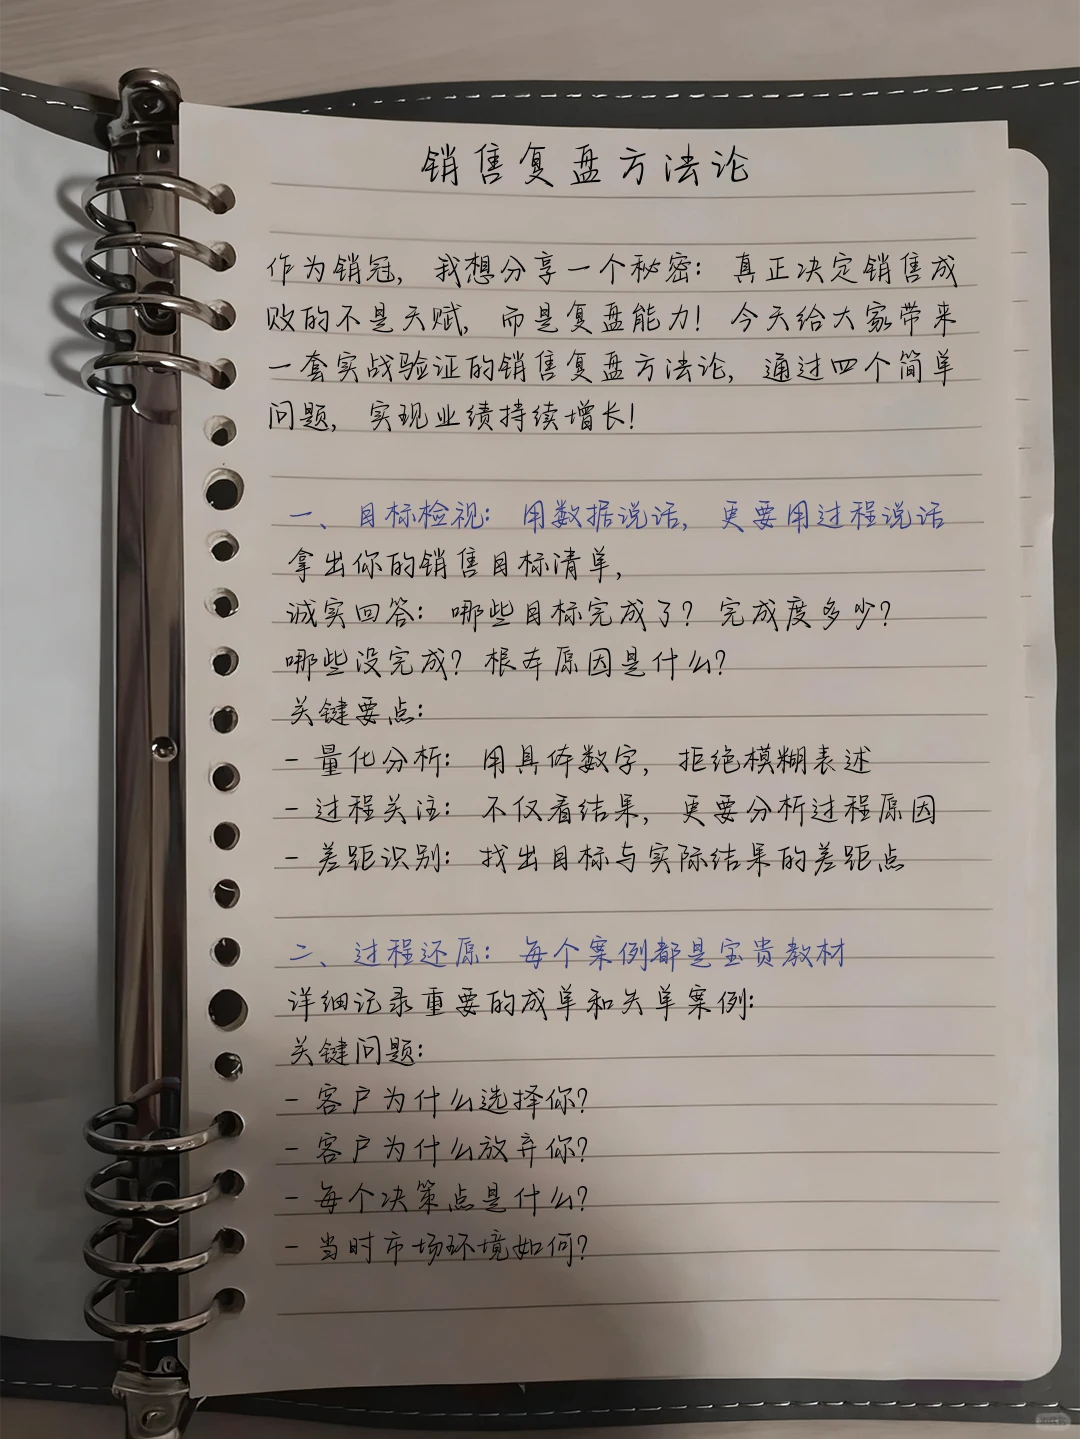 销售复盘方法论
作为销冠，我想分享一个秘密：真正决定销售成
败的不是天赋，而是复盘能力！今天给大家带来
一套实战验证的销售复盘方法论，通过四个简单
问题，实现业绩持续增长！
一、目标检视：用数据说话，更要用过程说话
拿出你的销售目标清单，
诚实回答：哪些目标完成了？完成度多少？
哪些没完成？根本原因是什么？
关键要点：
- 量化分析：用具体数字，拒绝模糊表述
- 过程关注：不仅看结果，更要分析过程原因
- 差距识别：找出目标与实际结果的差距点
二、过程还原：每个案例都是宝贵教材
详细记录重要的成单和失单案例：
关键问题：
- 客户为什么选择你？
- 客户为什么放弃你？
- 每个决策点是什么？
- 当时市场环境如何？